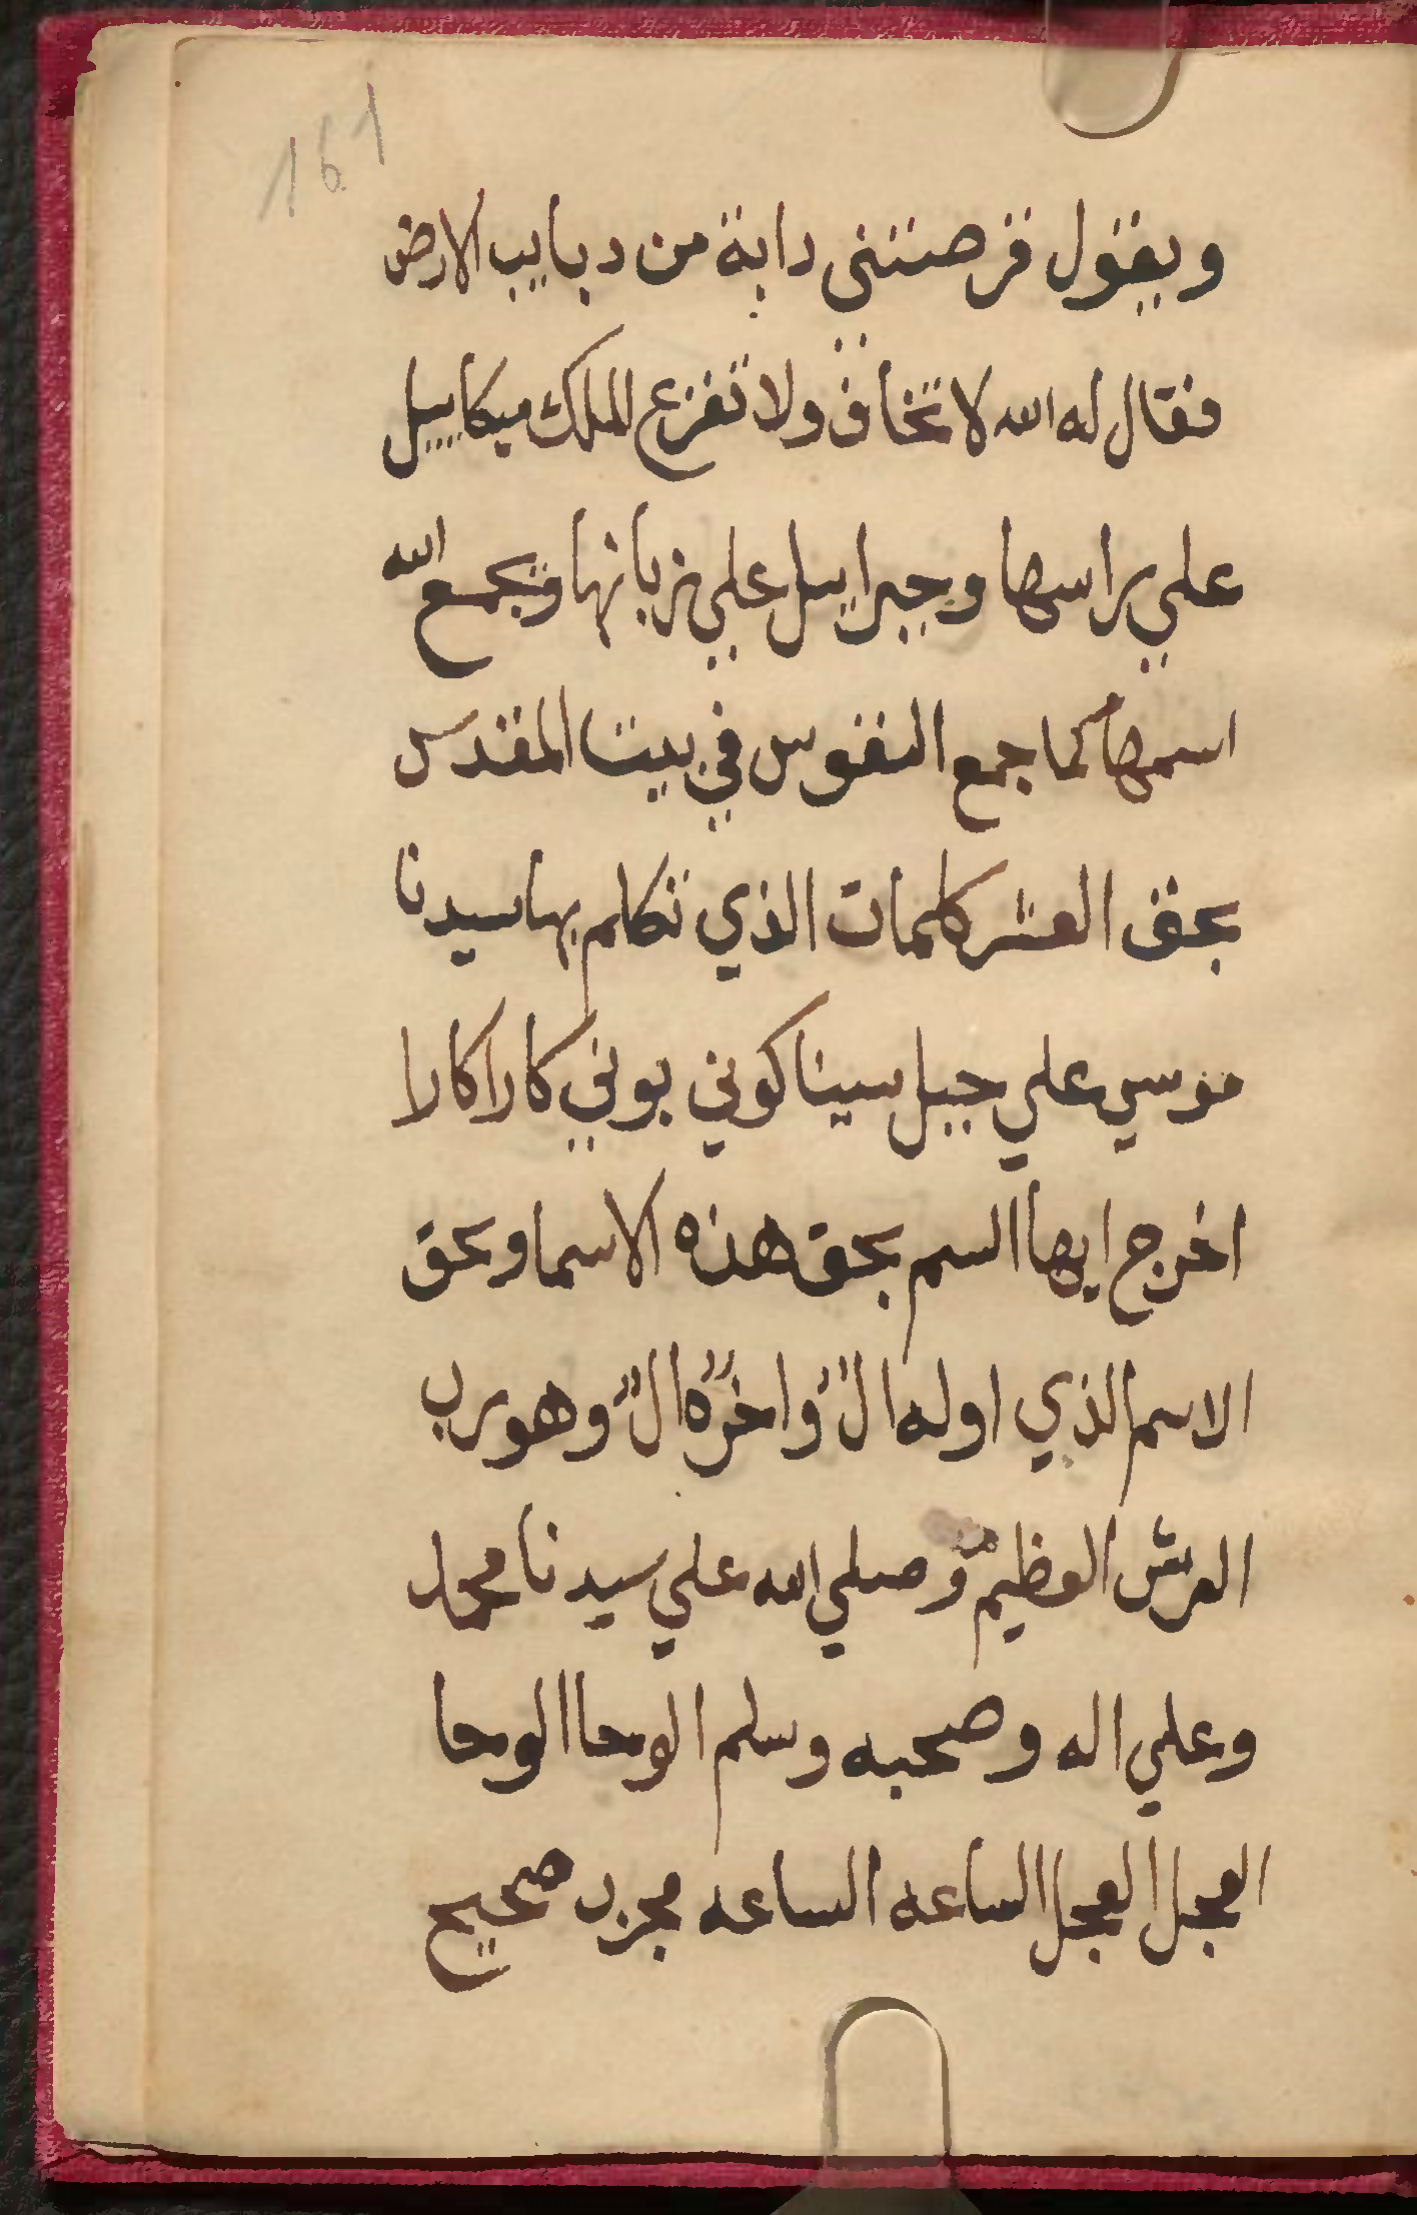 161
ويقول قرصتني دابة من دبايب الارض
فقال له الله لا تخاف ولا تفزع الملك ميكاييل
علي راسها وجبراييل علي زبانها ويجمع الله
اسمها كما جمع النفوس في بيت المقدس
بحق العشر كلمات الذي تكلم بها سيدنا
موسي علي جبل سينا كوني بوني كارا كارا
اخرج ايها السم بحق هذه الاسما وبحق
الاسم الذي اوله ال واخره ال وهو رب
العرش العظيم وصلي الله علي سيدنا محمد
وعلي اله وصحبه وسلم الوحا الوحا
العجل العجل الساعه الساعه مجرب صحيح